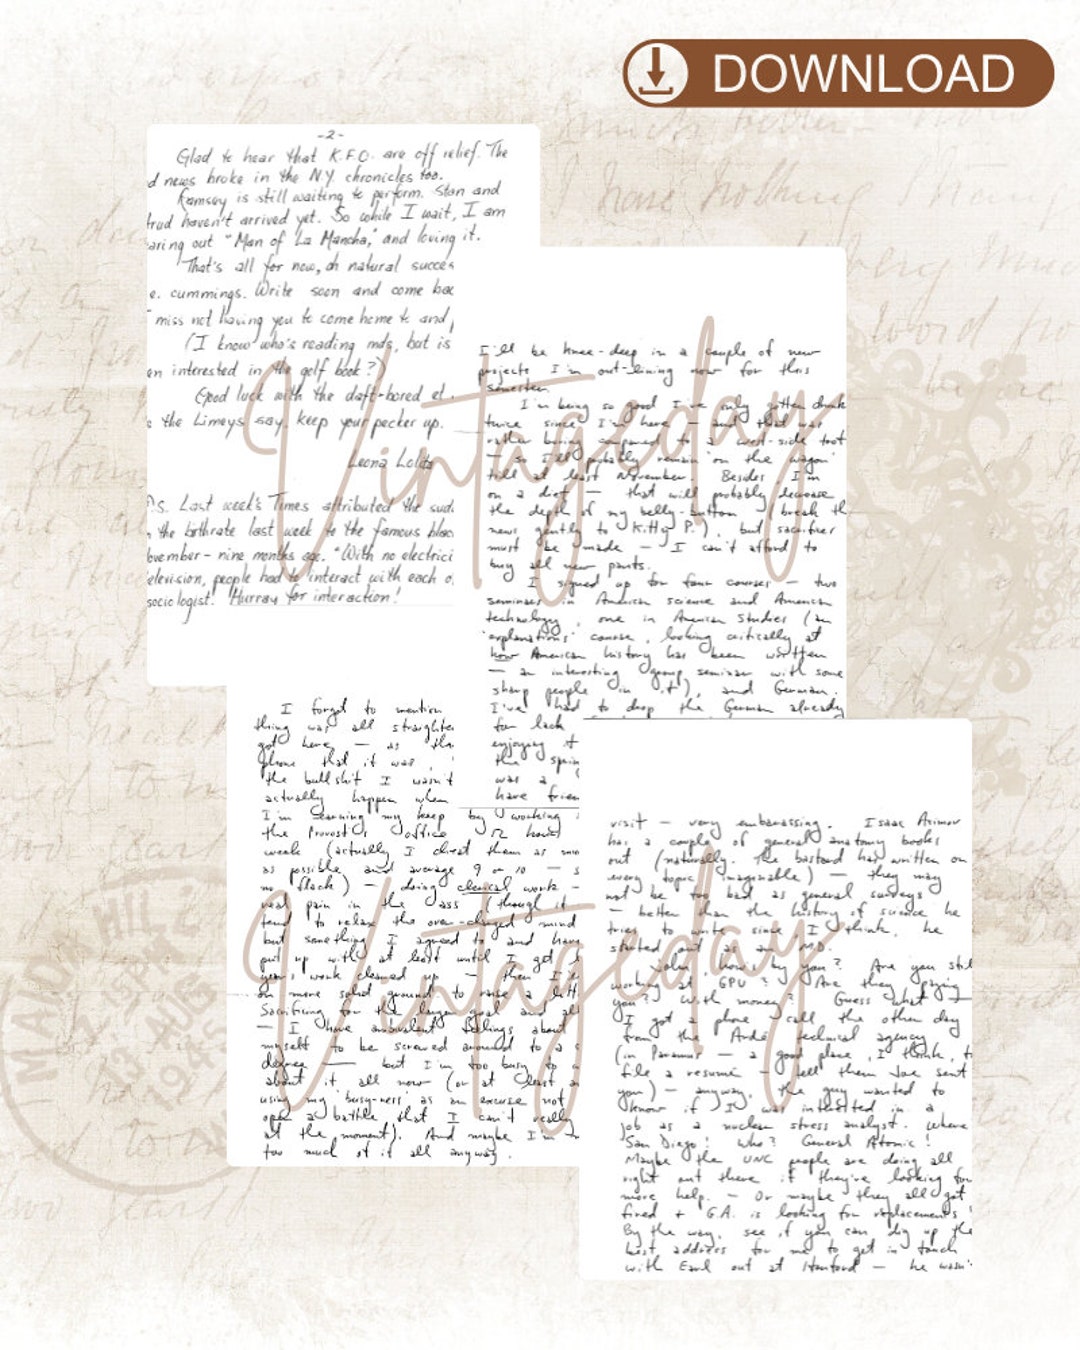 DOWNLOAD
-2-
Glad to hear that K.F.O. are off relief. The
d news broke in the N.Y. chronicles too.
Ramsey is still waiting to perform. Stan and
trud haven't arrived yet. So while I wait, I am
aring out "Man of La Mancha," and loving it.
That's all for now, oh natural succes
e. cummings. Write soon and come bac
I miss not having you to come home to and,
(I know who's reading mds, but is
en interested in the golf book?)
Good luck with the daft-bored el.
s the Limeys say, keep your pecker up.
Leona Lolita
P.S. Last week's Times attributed the sud
n the birthrate last week to the famous blac
ovember - nine months ago. "With no electrici
elevision, people had to interact with each o
sociologist. Hurray for interaction!
I'll be knee-deep in a couple of new
projects I'm out-lining now for this
semester.
I'm being so good I've only gotten drunk
twice since I'm here — and that was
rather boring compared to a west-side toot
— so I'll probably remain 'on the wagon'
till at least November. Besides, I'm
on a diet — that will probably decrease
the depth of my belly-button (break th
news gently to Kitty P.), but sacrifices
must be made — I can't afford to
buy all new pants.
I signed up for four courses — two
seminars in American science and American
technology, one in American Studies (an
'explanations' course, looking critically at
how American history has been written
— an interesting group seminar with some
sharp people in it), and German.
I've had to drop the German already
for lack
enjoying it
the sprin
was a
have frien
I forgot to mention
thing was all straighte
got here — as the
phone that it was
the bullshit I wasn't
actually happen when
I'm earning my keep by working
the Provost's office 12 hours
week (actually I cheat them as much
as possible and average 9 or 10 — s
no flack) — doing clerical work —
real pain in the ass (though it
tend to relax the over-charged mind
but something I agreed to and have
put up with at least until I get
year's work cleaned up — then I'll
on more solid ground to raise a litt
Sacrificing for the larger goal and all
— I have ambivalent feelings about
myself to be screwed around to a s
degree — but I'm too busy to
about it all now (or at least am
using my 'busy-ness' as an excuse not
open a battle that I can't really
at the moment). And maybe I'm
too much of it all anyway.
visit — very embarrassing. Isaac Asimov
has a couple of general anatomy books
out (naturally. The bastard has written on
every topic imaginable) — they may
not be too bad as general surveys
— better than the history of science he
tries to write since, I think, he
started out as an M.D.
John, how's by you? Are you still
working at GPU? Are they paying
you? With money? Guess what —
I got a phone call the other day
from the Ardé technical agency
(in Paramus — a good place, I think, to
file a resumé — tell them Joe sent
you) — anyway, the guy wanted to
know if I was interested in a
job as a nuclear stress analyst. Where
San Diego! Who? General Atomic!
Maybe the UNC people are doing all
right out there if they're looking for
more help. — Or maybe they all got
fired + G.A. is looking for replacements!
By the way, see if you can dig up the
best address for me to get in touch
with Earl out at Hanford — he wasn'
Vintageday
Vintageday